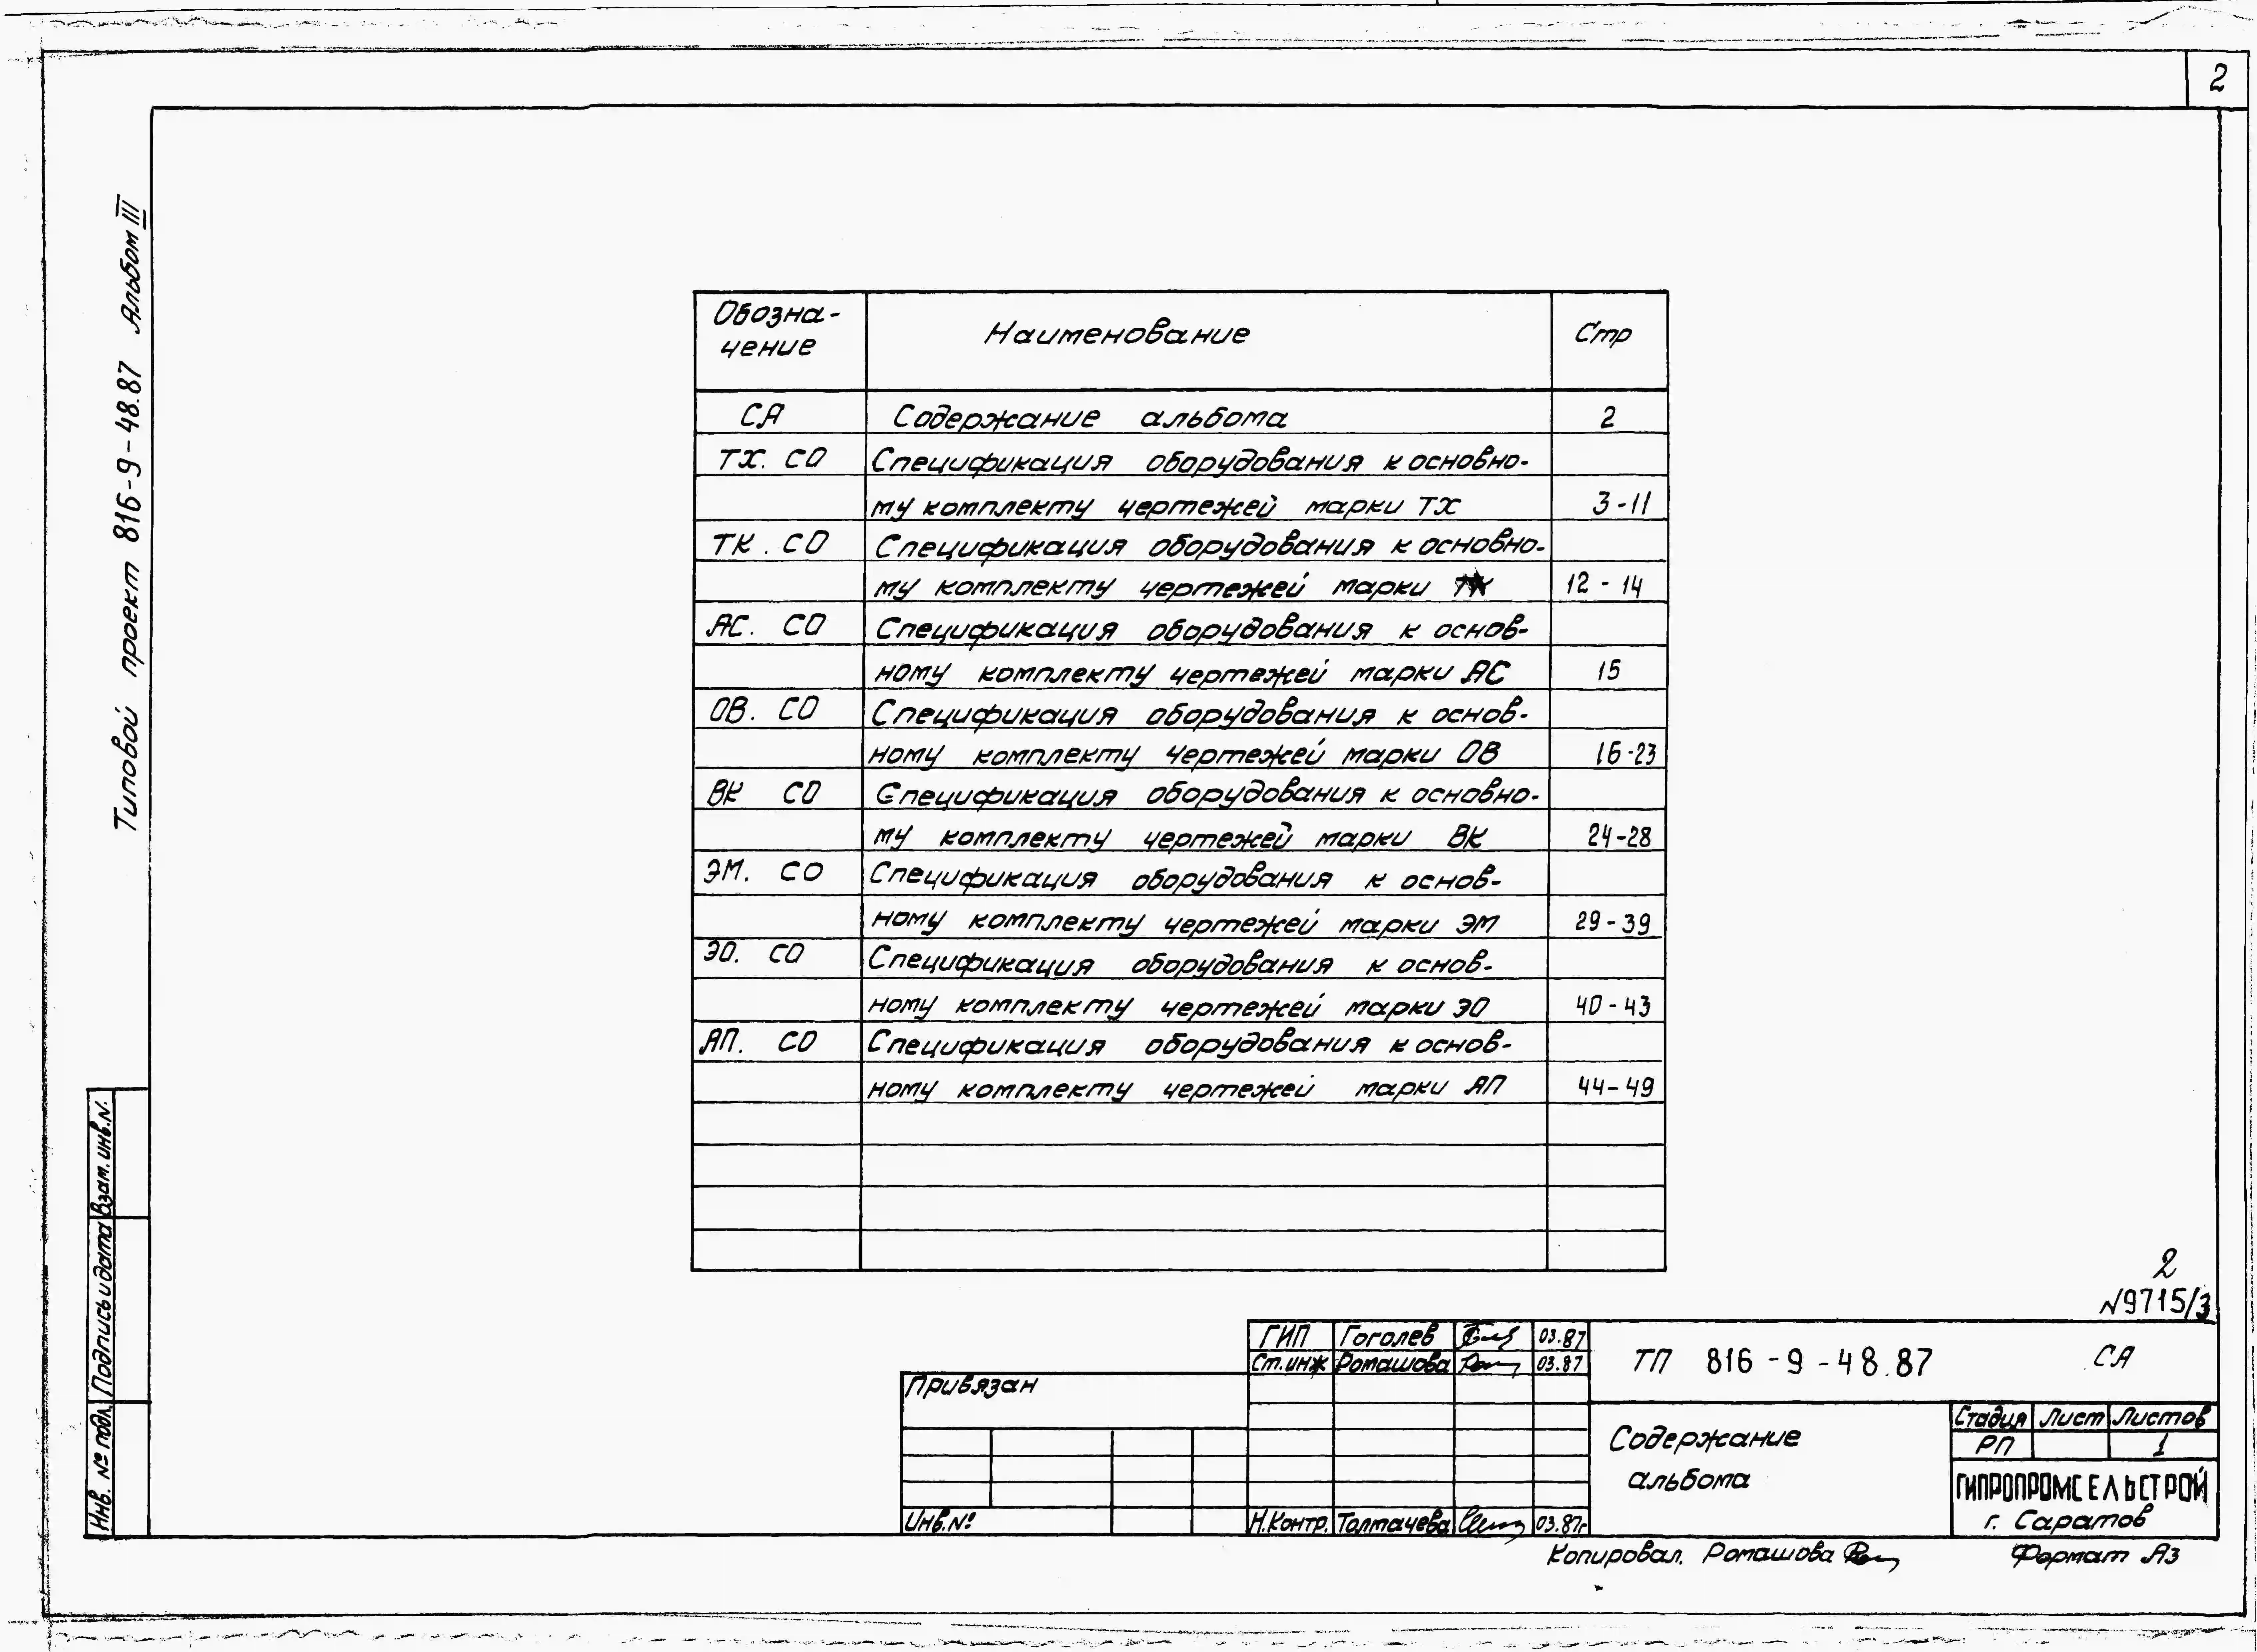 2
Типовой проект 816-9-48.87 Альбом III
Обозна- Наименование Стр
чение
СА Содержание альбома 2
ТХ. СО Спецификация оборудования к основно-
му комплекту чертежей марки ТХ 3-11
ТК. СО Спецификация оборудования к основно-
му комплекту чертежей марки ТК 12-14
АС. СО Спецификация оборудования к основ-
ному комплекту чертежей марки АС 15
ОВ. СО Спецификация оборудования к основ-
ному комплекту чертежей марки ОВ 16-23
ВК СО Спецификация оборудования к основно-
му комплекту чертежей марки ВК 24-28
ЭМ. СО Спецификация оборудования к основ-
ному комплекту чертежей марки ЭМ 29-39
ЭО. СО Спецификация оборудования к основ-
ному комплекту чертежей марки ЭО 40-43
АП. СО Спецификация оборудования к основ-
ному комплекту чертежей марки АП 44-49
Взам. инв.N.
Подпись и дата
Инв. № подл.
2
N9715/3
ГИП Гоголев 03.87
Ст.инж Ромашова 03.87
ТП 816-9-48.87 СА
Привязан
Содержание
альбома
Стадия Лист Листов
РП 1
ГИПРОПРОМСЕЛЬСТРОЙ
г. Саратов
Инв.№
Н.Контр. Толмачева 03.87г
Копировал. Ромашова
Формат А3